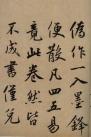 僑作一入墨鋒
便散凡四五易
竟此卷然皆
不成書僅免